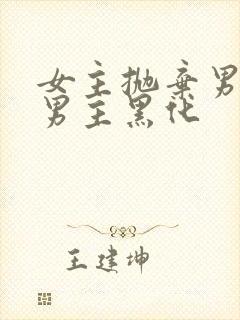 女主抛弃男
男主黑化
王建坤